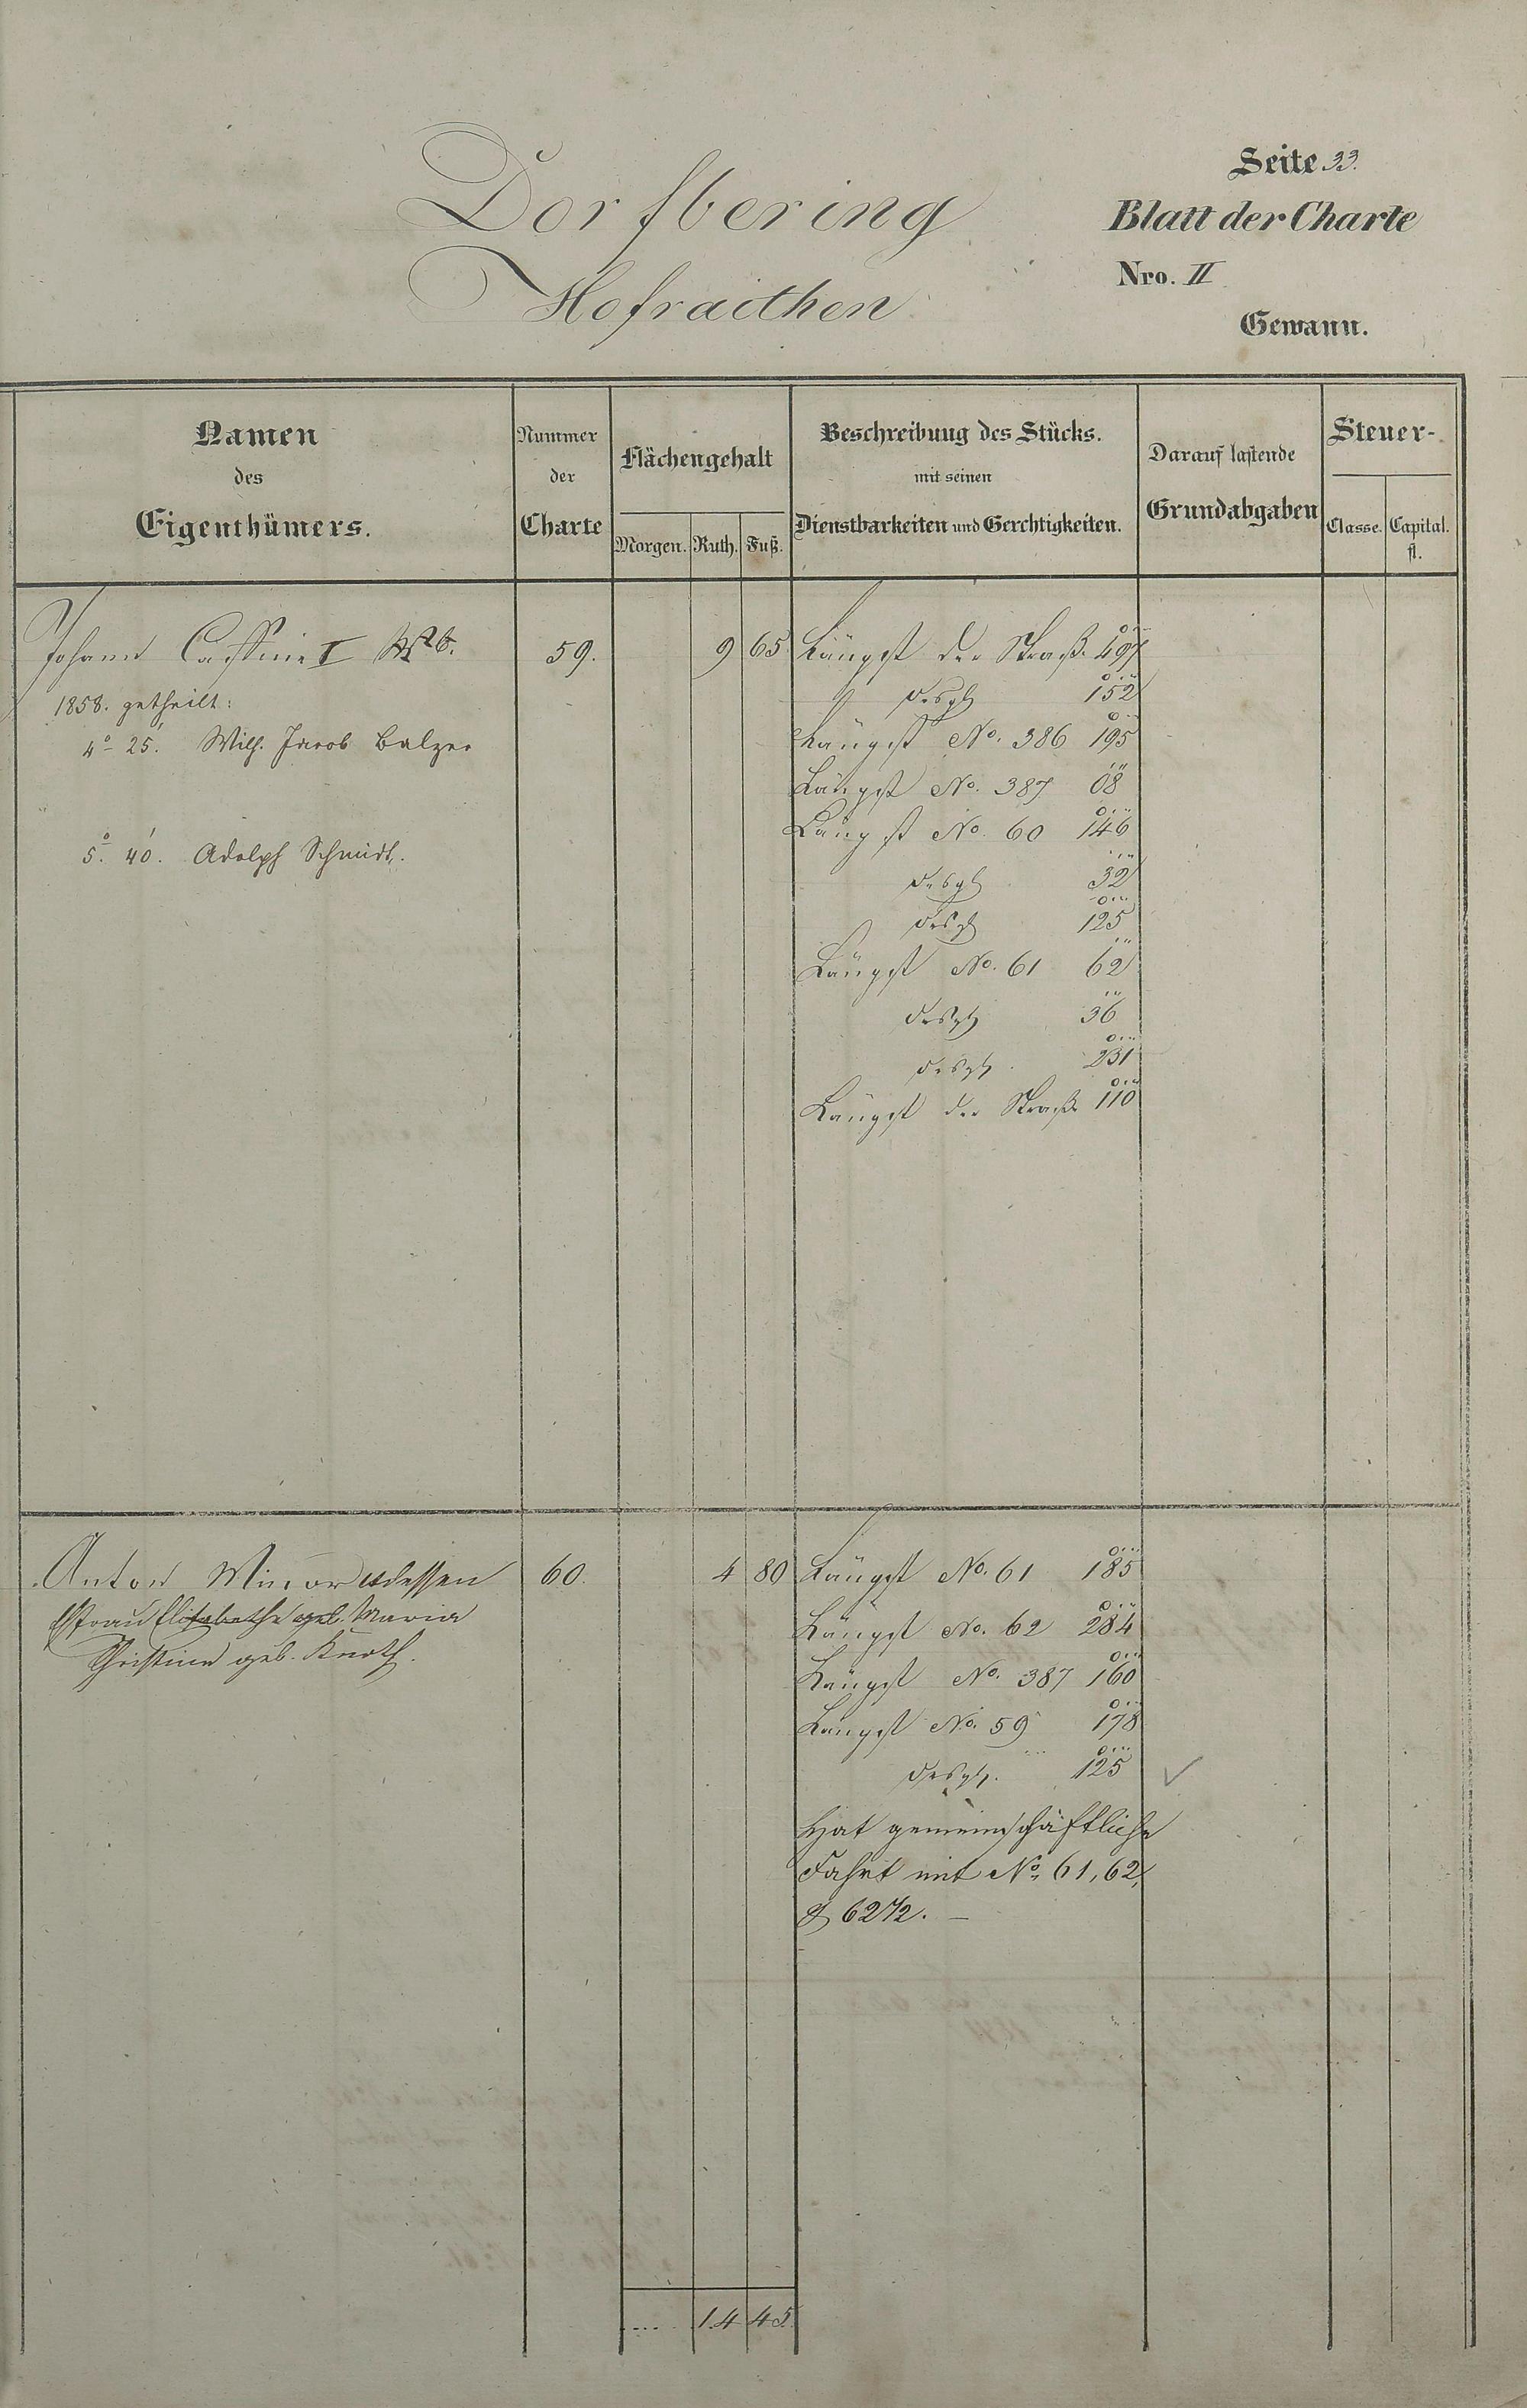 Seite 33.
Dorfbering
Blatt der Charte
Hofraithen
Nro. II
Gewann.
Namen
des
Eigenthümers.
Nummer
der
Charte
Flächengehalt
Morgen. Ruth. Fuß.
Beschreibung des Stücks.
mit seinen
Dienstbarkeiten und Gerchtigkeiten.
Darauf lastende
Grundabgaben
Steuer-
Classe. Capital.
fl.
Johann I 59. 9 65 Längst der Straß. 497
1858. getheilt: desgl 152
4° 25'. Wilh. Jacob Balzer Längst No. 386 195
Längst No. 387 08
5.° 40'. Adolph Schmidt. Längst No. 60 146
desgl 32
desgl 125
Längst No. 61 62
desgl 36
desgl. 231
Längst der Straße 110
Anton Minor u dessen 60. 4 80 Längst No. 61 185
Efrau Elisabetha geb. Maria Längst No. 62 284
Christine geb. Knoth. Längst No. 387 160
Längst No. 59 178
desgl. 125
Hat gemeinschäftliche
Fahrt mit No. 61, 62,
& 62 1/2. —
.... 14 45.